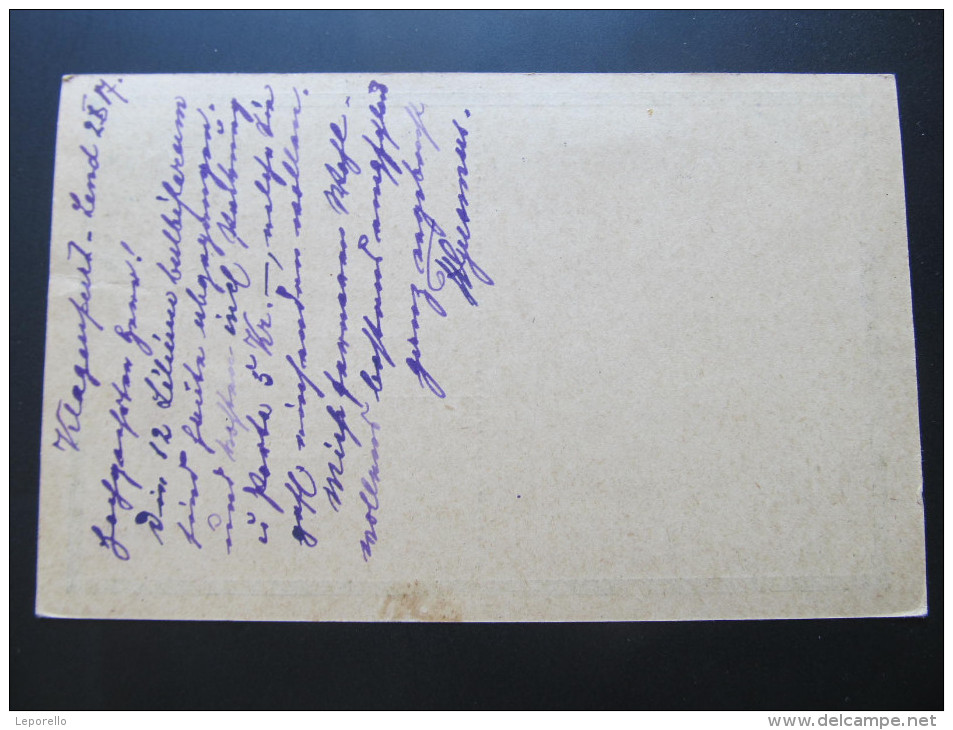 Klagenfurt-Lend 28 X 17.
Hochgeehrter Herr!
Die 12 Lilium bulbiferum
sind heute abgegangen
und kosten incl Packung
u Porto 5 Kr. –, welche Sie
gefl einsenden wollen.
Mich fernerem Wohl-
wollend bestens empfehlend
ganz ergebenst
Leporello
www.delcampe.net